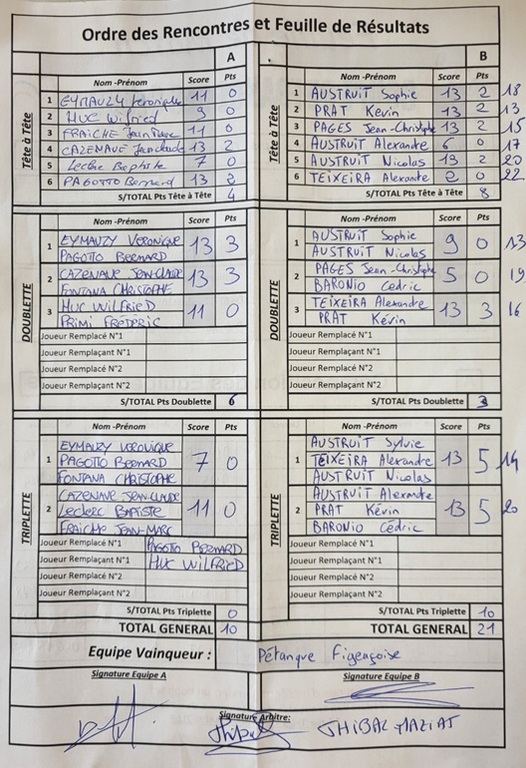 Ordre des Rencontres et Feuille de Résultats
A
Tête à Tête
Nom -Prénom Score Pts
1 EYMAUZY Veronique 11 0
2 HUC Wilfried 9 0
3 FRAICHE Jean Marc 11 0
4 CAZENAVE Jean claude 13 2
5 Leclerc Baptiste 7 0
6 PAGOTTO Bernard 13 2
S/TOTAL Pts Tête à Tête 4
B
Tête à Tête
Nom -Prénom Score Pts
1 AUSTRUIT Sophie 13 2 18
2 PRAT Kevin 13 2 13
3 PAGES Jean-Christophe 13 2 15
4 AUSTRUIT Alexandre 6 0 17
5 AUSTRUIT Nicolas 13 2 20
6 TEIXEIRA Alexandre 2 0 22
S/TOTAL Pts Tête à Tête 8
DOUBLETTE
Nom -Prénom Score Pts
1 EYMAUZY VERONIQUE 13 3
PAGOTTO BERNARD
2 CAZENAVE JEAN-CLAUDE 13 3
FONTANA CHRISTOPHE
3 HUC WILFRIED 11 0
PRIMI FRÉDÉRIC
Joueur Remplacé N°1
Joueur Remplaçant N°1
Joueur Remplacé N°2
Joueur Remplaçant N°2
S/TOTAL Pts Doublette 6
DOUBLETTE
Nom -Prénom Score Pts
1 AUSTRUIT Sophie 9 0 13
AUSTRUIT Nicolas
2 PAGES Jean-Christophe 5 0 19
BARONIO Cedric
3 TEIXEIRA Alexandre 13 3 16
PRAT Kévin
Joueur Remplacé N°1
Joueur Remplaçant N°1
Joueur Remplacé N°2
Joueur Remplaçant N°2
S/TOTAL Pts Doublette 3
TRIPLETTE
Nom -Prénom Score Pts
1 EYMAUZY VERONIQUE
PAGOTTO BERNARD 7 0
FONTANA CHRISTOPHE
2 CAZENAVE JEAN-CLAUDE
Leclerc BAPTISTE 11 0
FRAICHE JEAN-MARC
Joueur Remplacé N°1 PAGOTO BERNARD
Joueur Remplaçant N°1 HUC WILFRIED
Joueur Remplacé N°2
Joueur Remplaçant N°2
S/TOTAL Pts Triplette 0
TOTAL GENERAL 10
TRIPLETTE
Nom -Prénom Score Pts
1 AUSTRUIT Sylvie
TEIXEIRA Alexandre 13 5 14
AUSTRUIT Nicolas
2 AUSTRUIT Alexandre
PRAT Kévin 13 5 20
BARONIO Cédric
Joueur Remplacé N°1
Joueur Remplaçant N°1
Joueur Remplacé N°2
Joueur Remplaçant N°2
S/TOTAL Pts Triplette 10
TOTAL GENERAL 21
Equipe Vainqueur : Pétanque Figeaçoise
Signature Equipe A
Signature Equipe B
Signature Arbitre: THIBAL MAZIAT